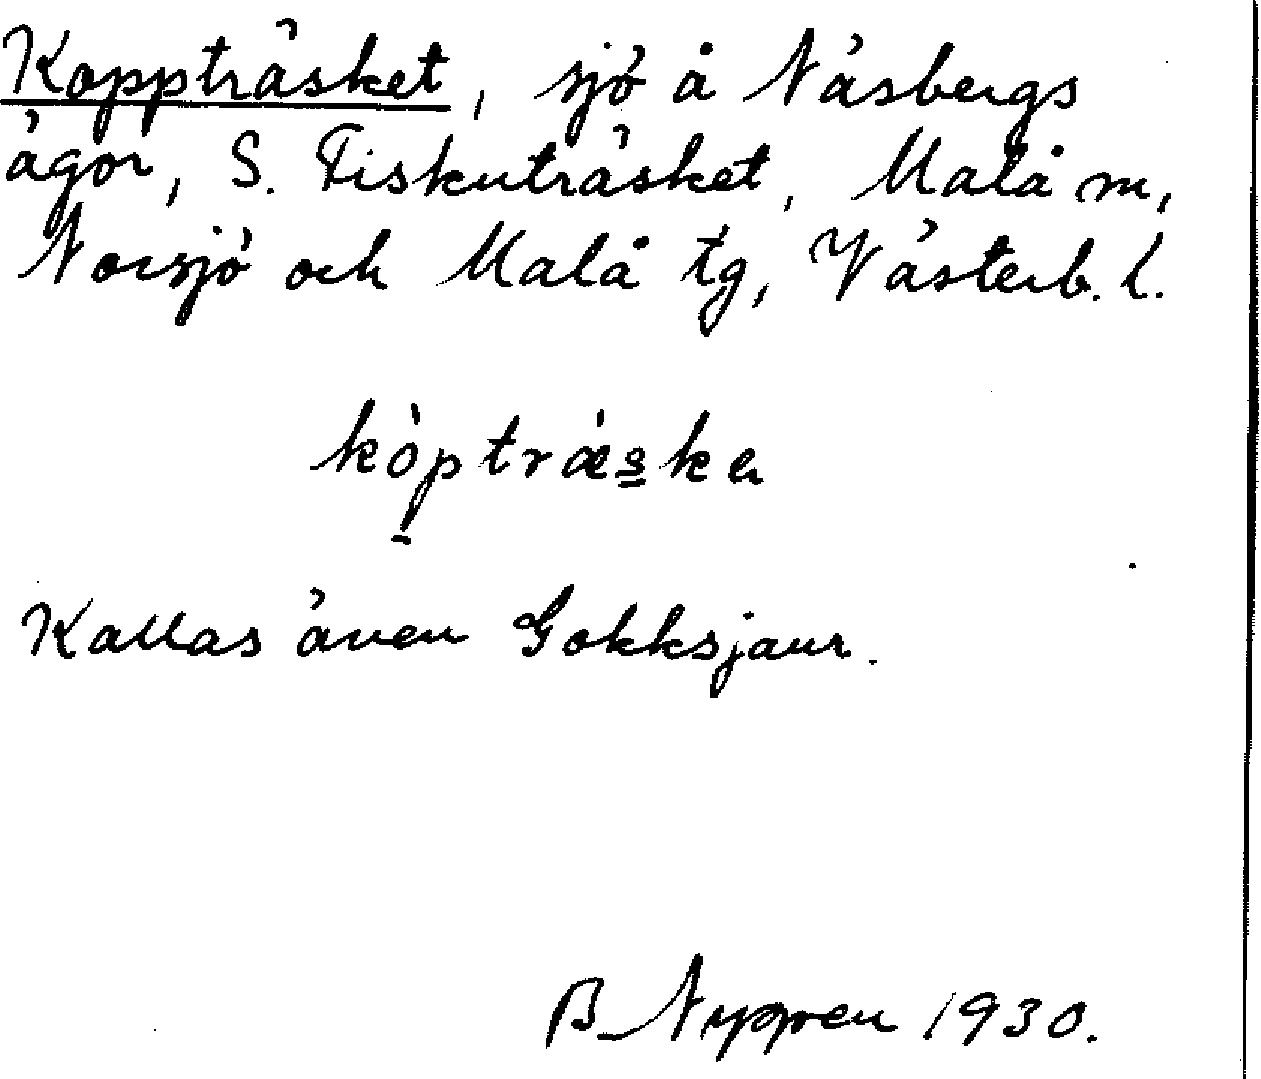 Koppträsket, sjö å Näsbergs
ägor, S. Fiskuträsket, Malå m,
Norsjö och Malå tg, Västerb. l.
kòptrǽska
Kallas även Gokksjaur.
B Nyppen 1930.